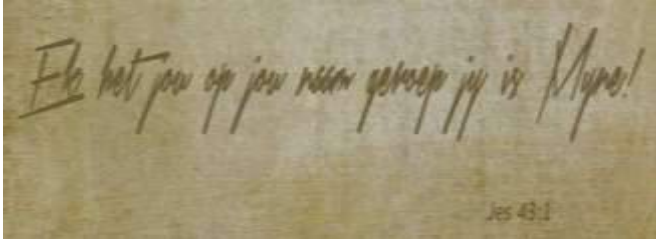 Ek het jou op jou naam geroep jy is Myne!
Jes 43:1